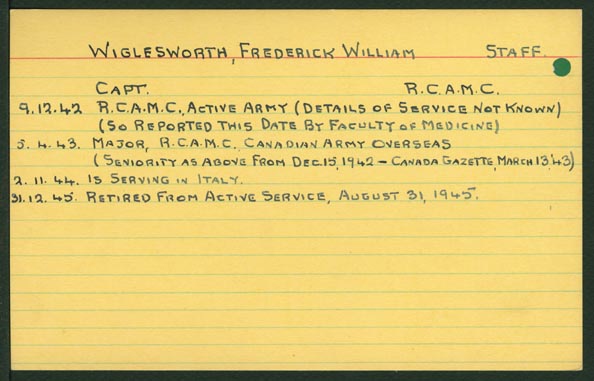 WIGLESWORTH, FREDERICK WILLIAM STAFF.
CAPT. R.C.A.M.C.
9.12.42 R.C.A.M.C., ACTIVE ARMY (DETAILS OF SERVICE NOT KNOWN)
(SO REPORTED THIS DATE BY FACULTY OF MEDICINE)
5.4.43. MAJOR, R.C.A.M.C. CANADIAN ARMY OVERSEAS
(SENIORITY AS ABOVE FROM DEC. 15, 1942 - CANADA GAZETTE, MARCH 13, 43)
2.11.44. IS SERVING IN ITALY.
31.12.45. RETIRED FROM ACTIVE SERVICE, AUGUST 31, 1945.